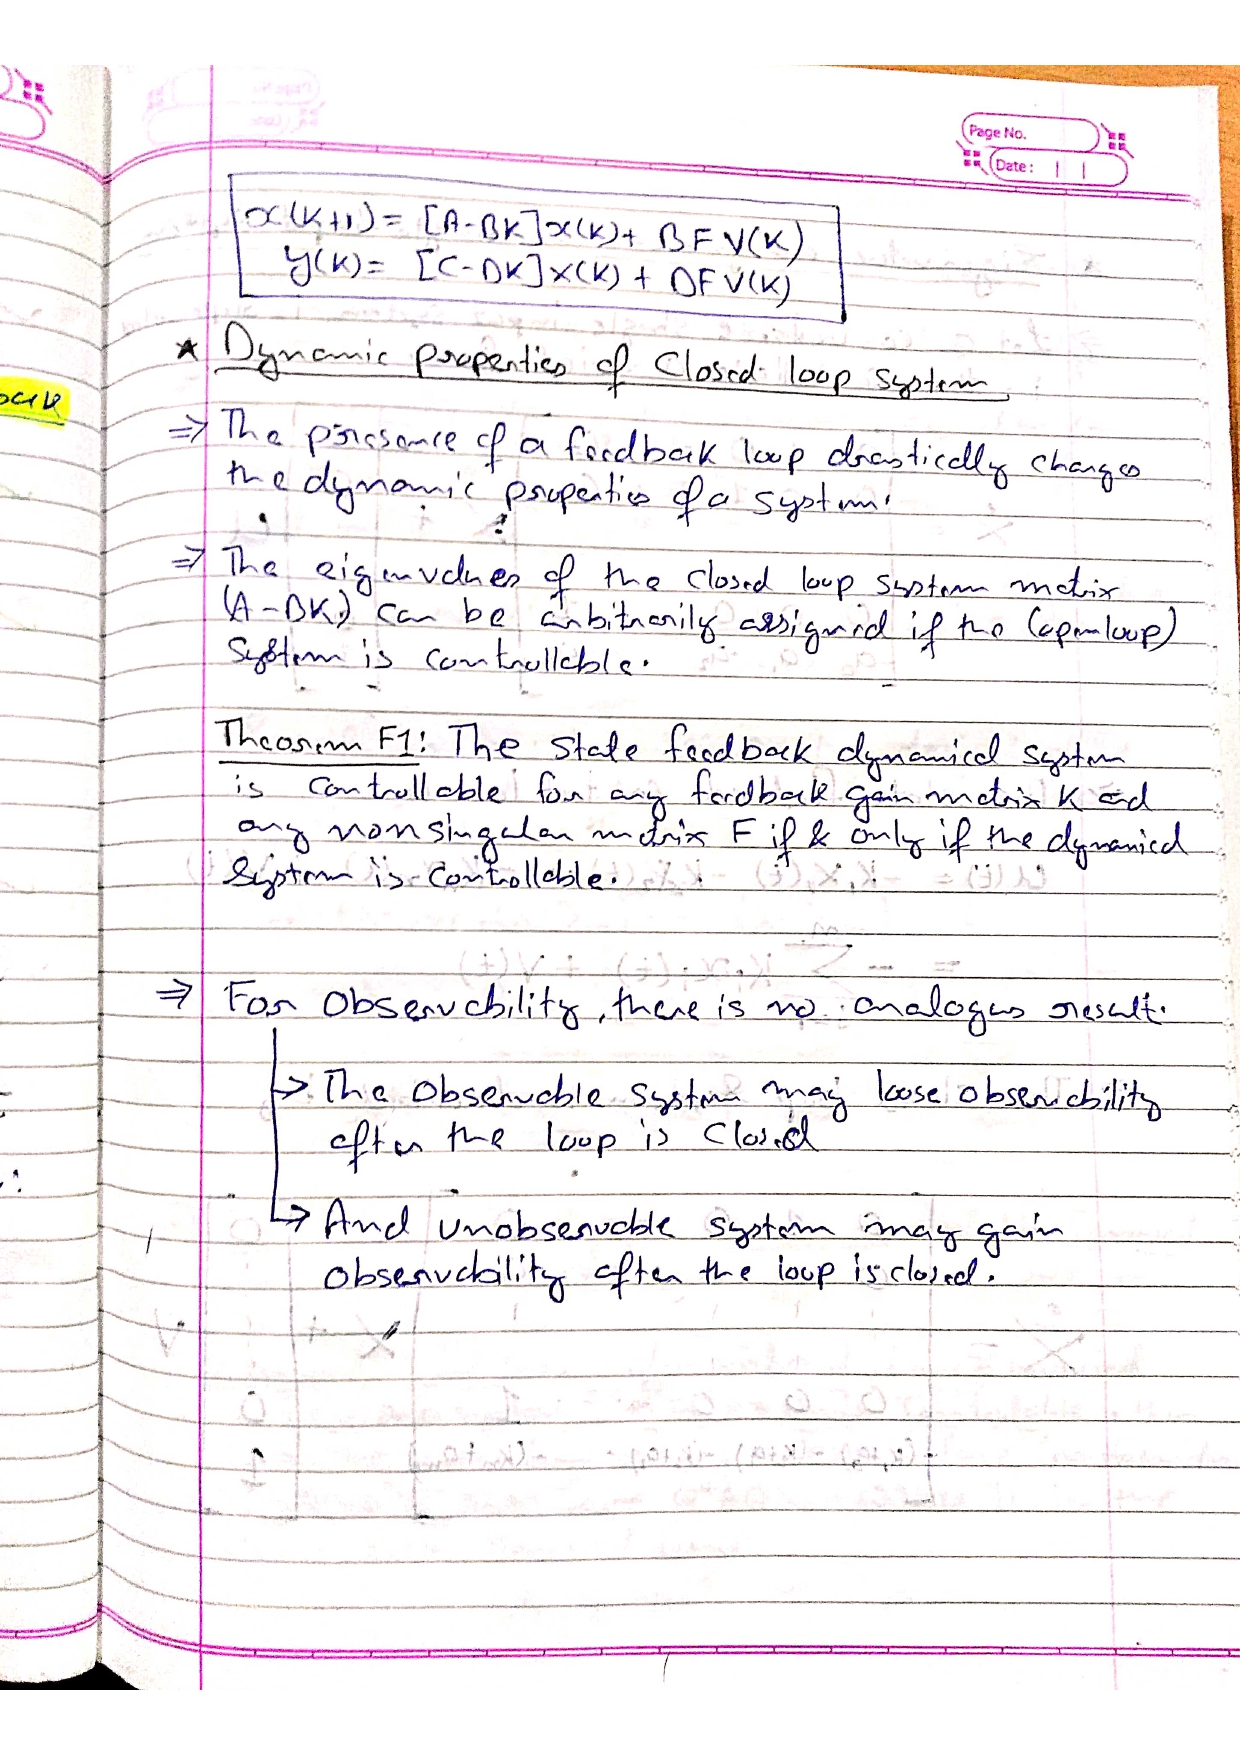 Page No.
Date :
x(K+1) = [A-BK]x(K)+ BFV(K)
y(K) = [C-DK]x(K) + DFV(K)
* Dynamic properties of Closed loop system
⇒ The presance of a feedback loop drastically changes
the dynamic properties of a system.
⇒ The eigenvalues of the closed loop system matrix
(A-BK) can be arbitrarily assigned if the (openloop)
System is controllable.
Theorem F1: The State feedback dynamical system
is controllable for any feedback gain matrix K and
any nonsingular matrix F if & only if the dynamical
System is controllable.
⇒ For Observability, there is no analogus result.
→ The Observable system may loose observability
after the loop is Closed
→ And unobservable system may gain
Observability after the loop is closed.